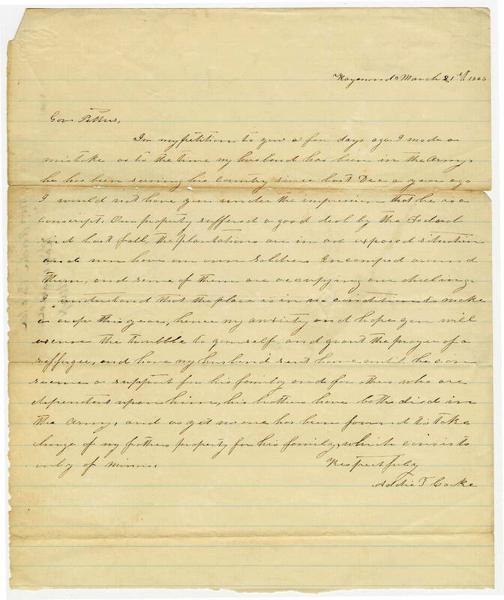 Raymond March 21st 1863
Gov Pettus,
In my petition to you a few days ago I made a
mistake as to the time my husband has been in the army,
he has been serving his country since last Dec a year ago
I would not have you under the impression that he is a
conscript. Our property suffered a good deal by the Federal
raid last fall, the plantations are in an exposed situation
and now have our own soldiers encamped around
them, and some of them are occupying our dwelling.
I understand that the place is in no condition to make
a crop this year, hence my anxiety and hope you will
excuse the trouble to yourself and grant the prayer of a
refugee, and have my husband sent home until he can
secure a support for his family and for others who are
dependent upon him, his brothers have both died in
the army, and as yet no one has been found to take
charge of my fathers property for his family, which consists
only of minors.
Respectfully
Addie T